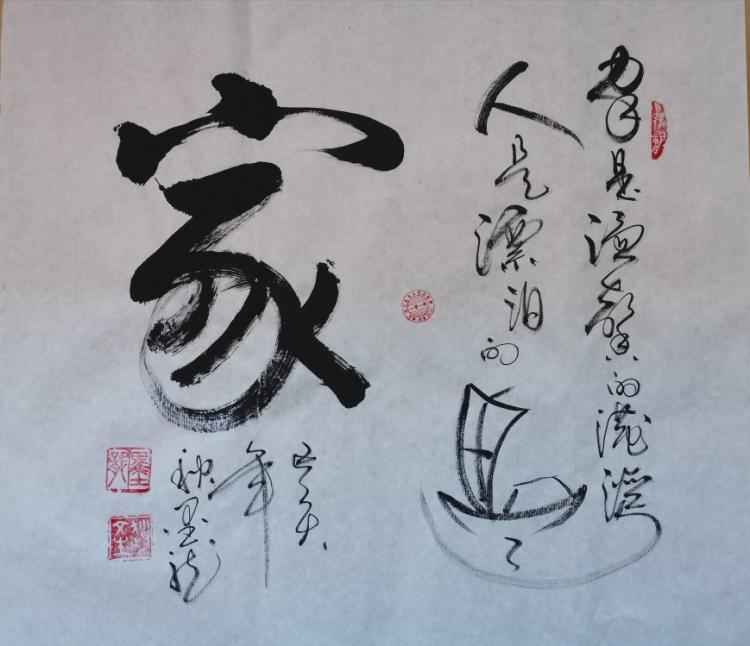 家是温馨的港湾
人是漂泊的
家
己亥
年
秋墨龙